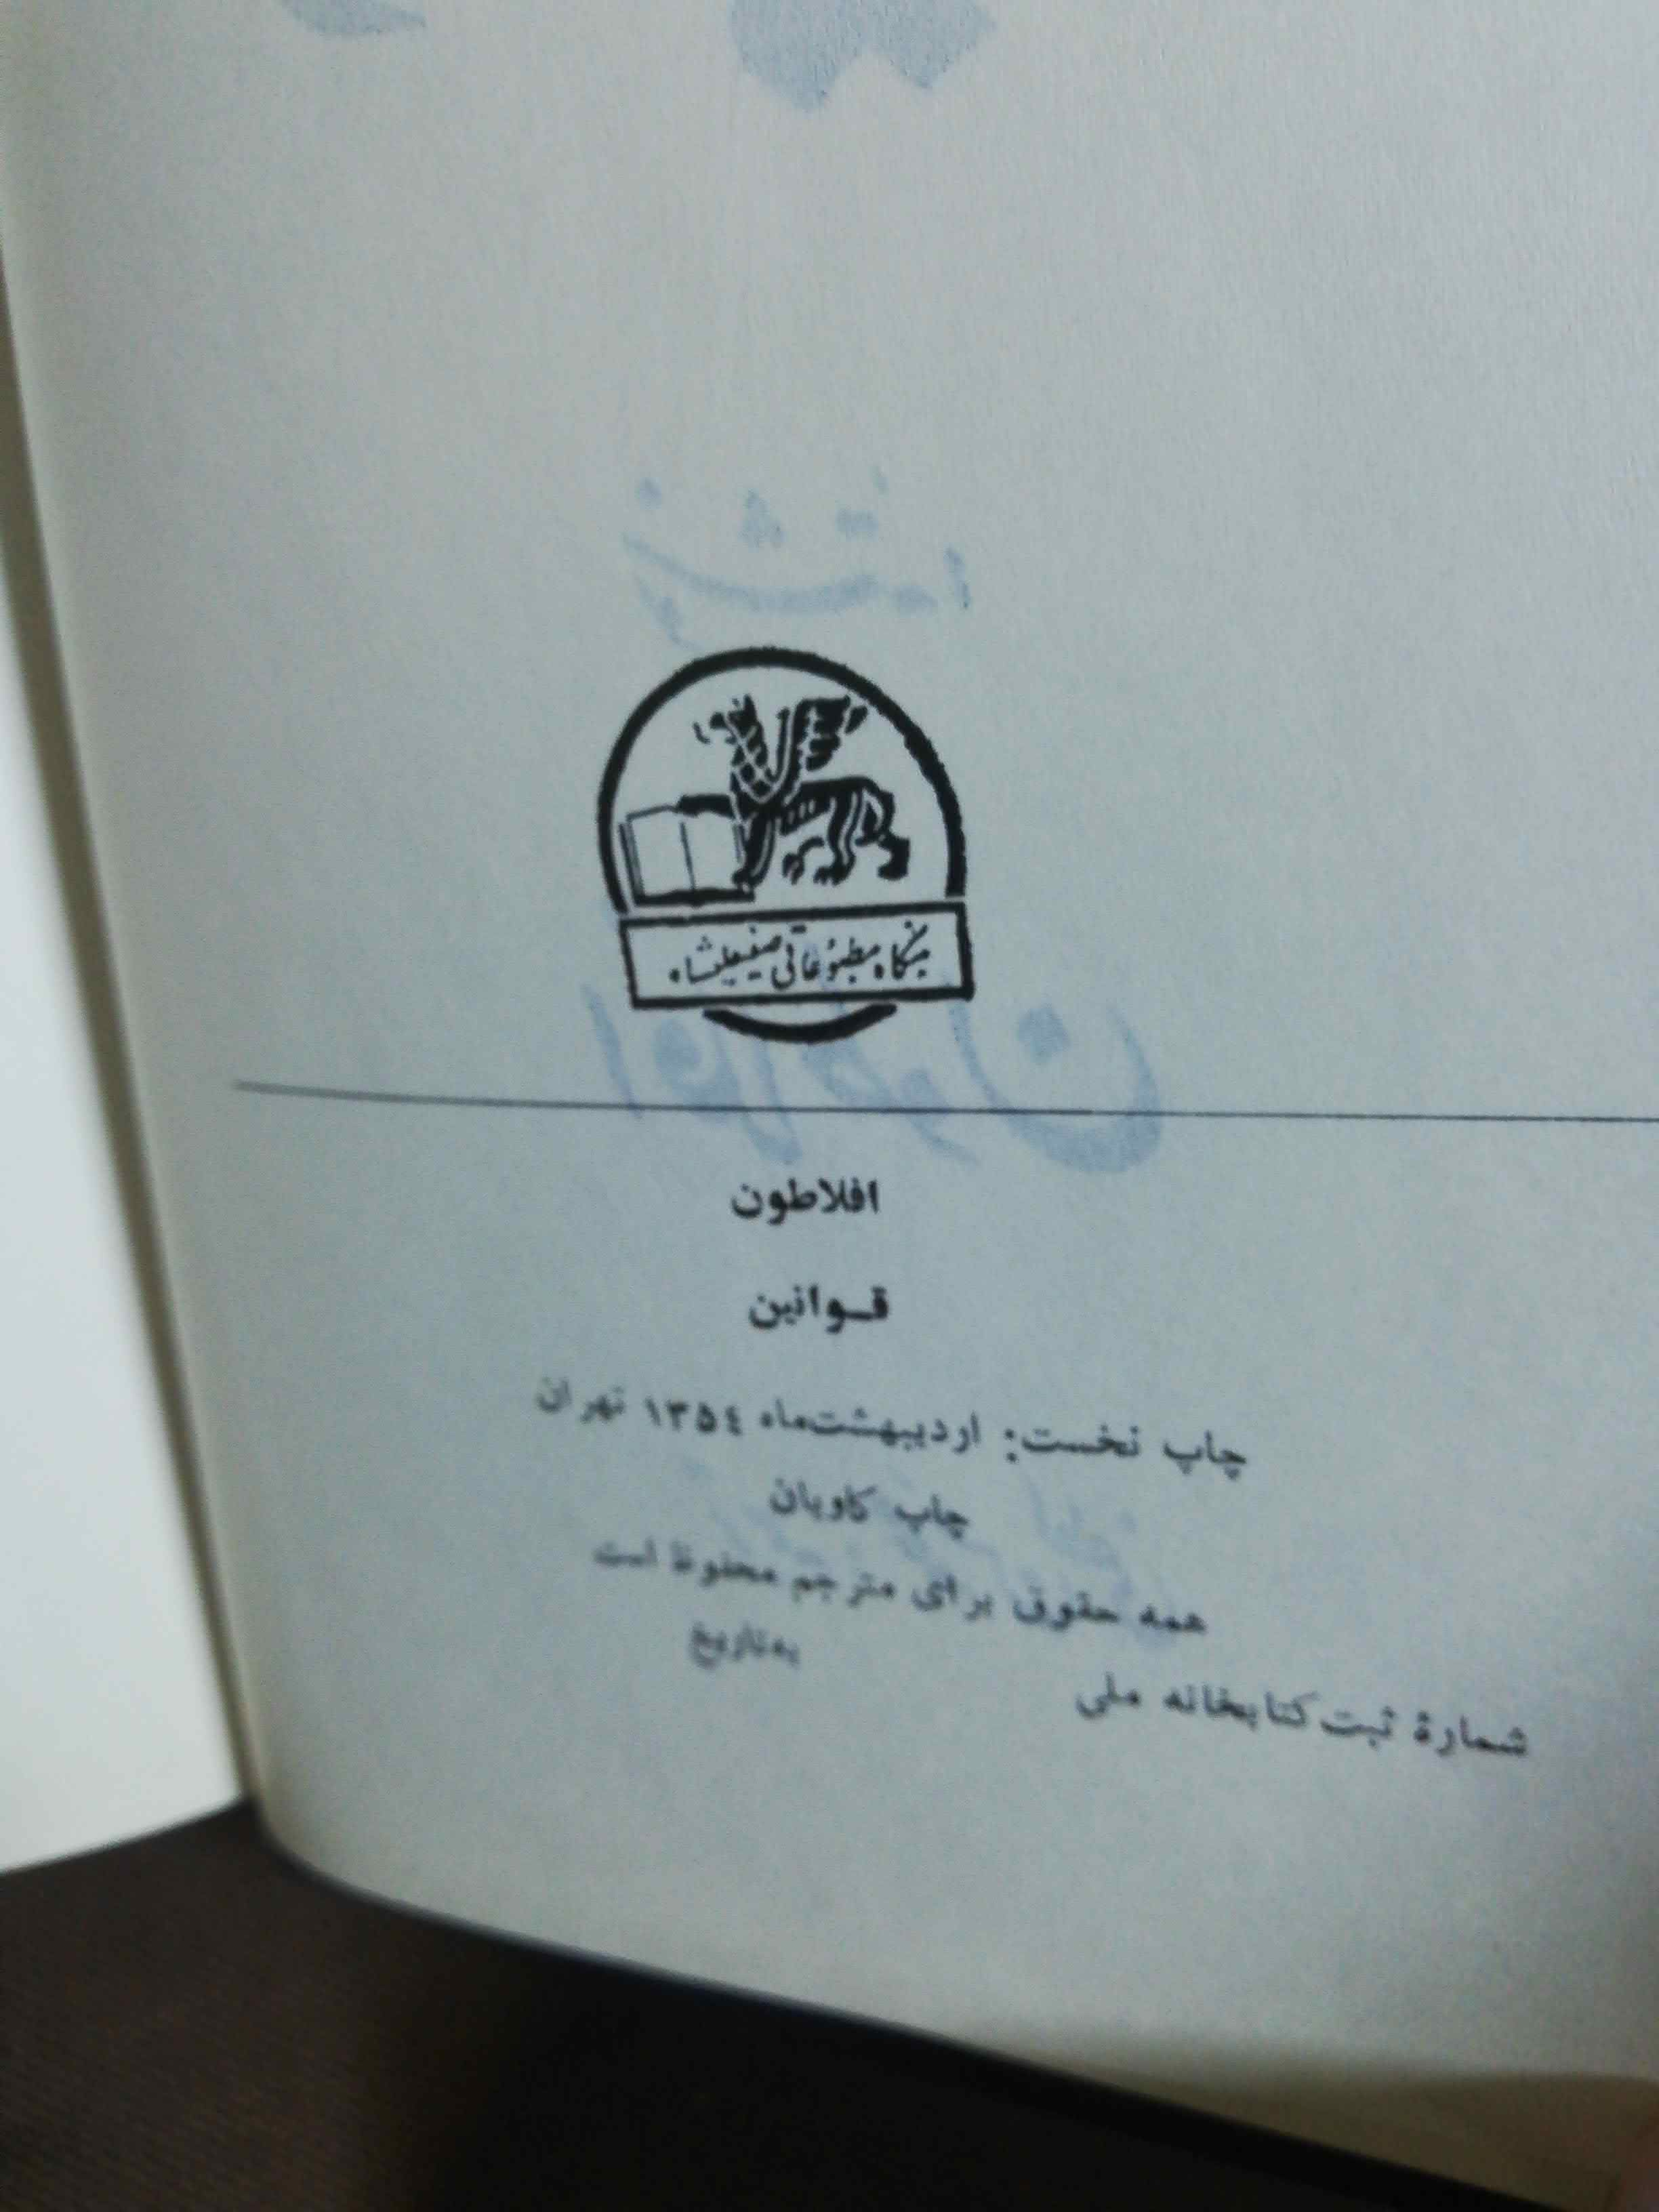 بنگاه مطبوعاتی صفیعلیشاه
افلاطون
قـوانین
چاپ نخست: اردیبهشت‌ماه ۱۳۵٤ تهران
چاپ کاویان
همه حقوق برای مترجم محفوظ است
شمارهٔ ثبت کتابخانه ملی به‌تاریخ